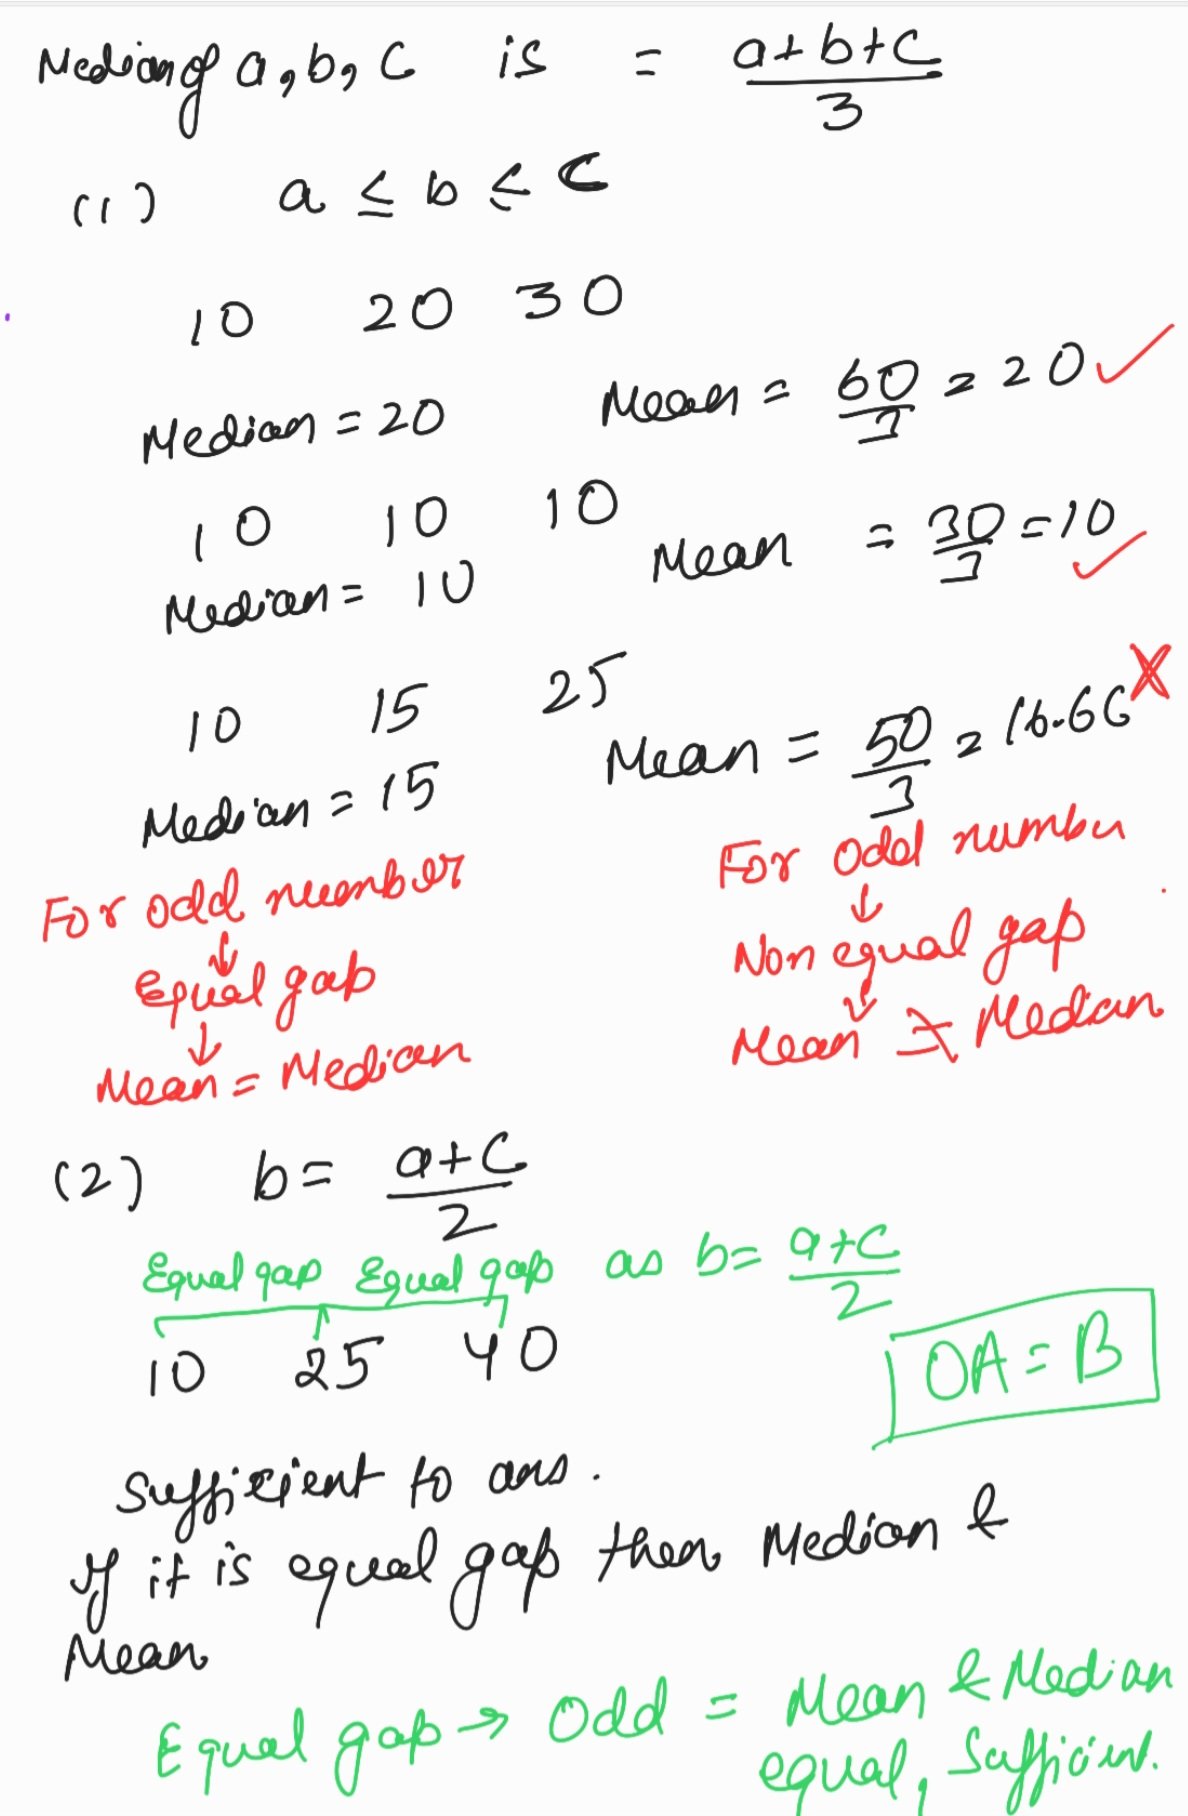 Median of a, b, c is = a+b+c / 3
(1) a ≤ b ≤ c
10 20 30
Median = 20 Mean = 60/3 = 20 ✓
10 10 10
Median = 10 Mean = 30/3 = 10 ✓
10 15 25
Median = 15 Mean = 50/3 = 16.66 X
For odd number
↓
Equal gap
↓
Mean = Median
For odd number
↓
Non equal gap
↓
Mean ≠ Median
(2) b = a+c / 2
Equal gap Equal gap as b = a+c / 2
10 25 40
OA = B
Sufficient to ans.
If it is equal gap then Median &
Mean
Equal gap → Odd = Mean & Median
equal, Sufficient.